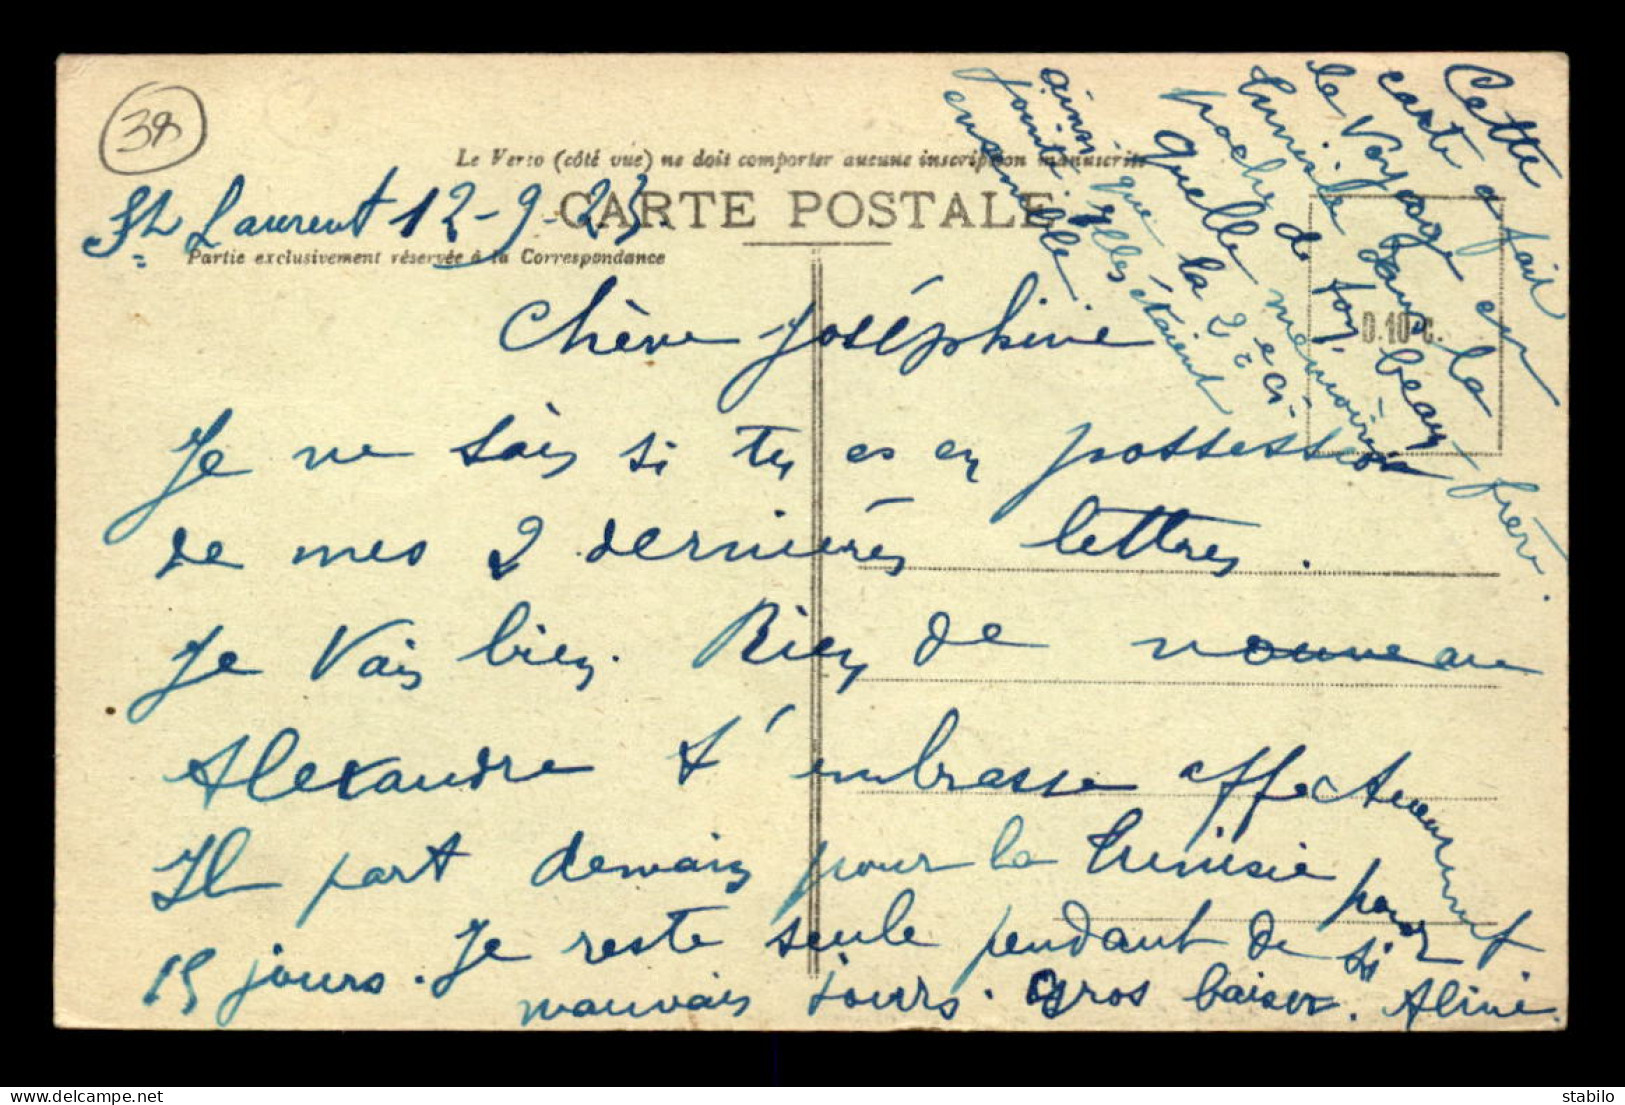 38
Le Verso (côté vue) ne doit comporter aucune inscription manuscrite
CARTE POSTALE
St Laurent 12-9-23.
Partie exclusivement réservée à la Correspondance
D.10 C.
Chère Joséphine
Je ne sais si tu es en possession
de mes 2 dernières lettres.
Je Vais bien. Rien de nouveau
Alexandre t'embrasse affectueusement
Il part demain pour la Tunisie pour
15 jours. Je reste seule pendant de si
mauvais jours. Gros baiser. Aline.
Cette
carte a fait
le Voyage en
Tunisie dans la
poche de ton beau-frère.
Quelle mémoire
ainsi que la 2e ci-
jointe elles étaient
ensemble
stabilo